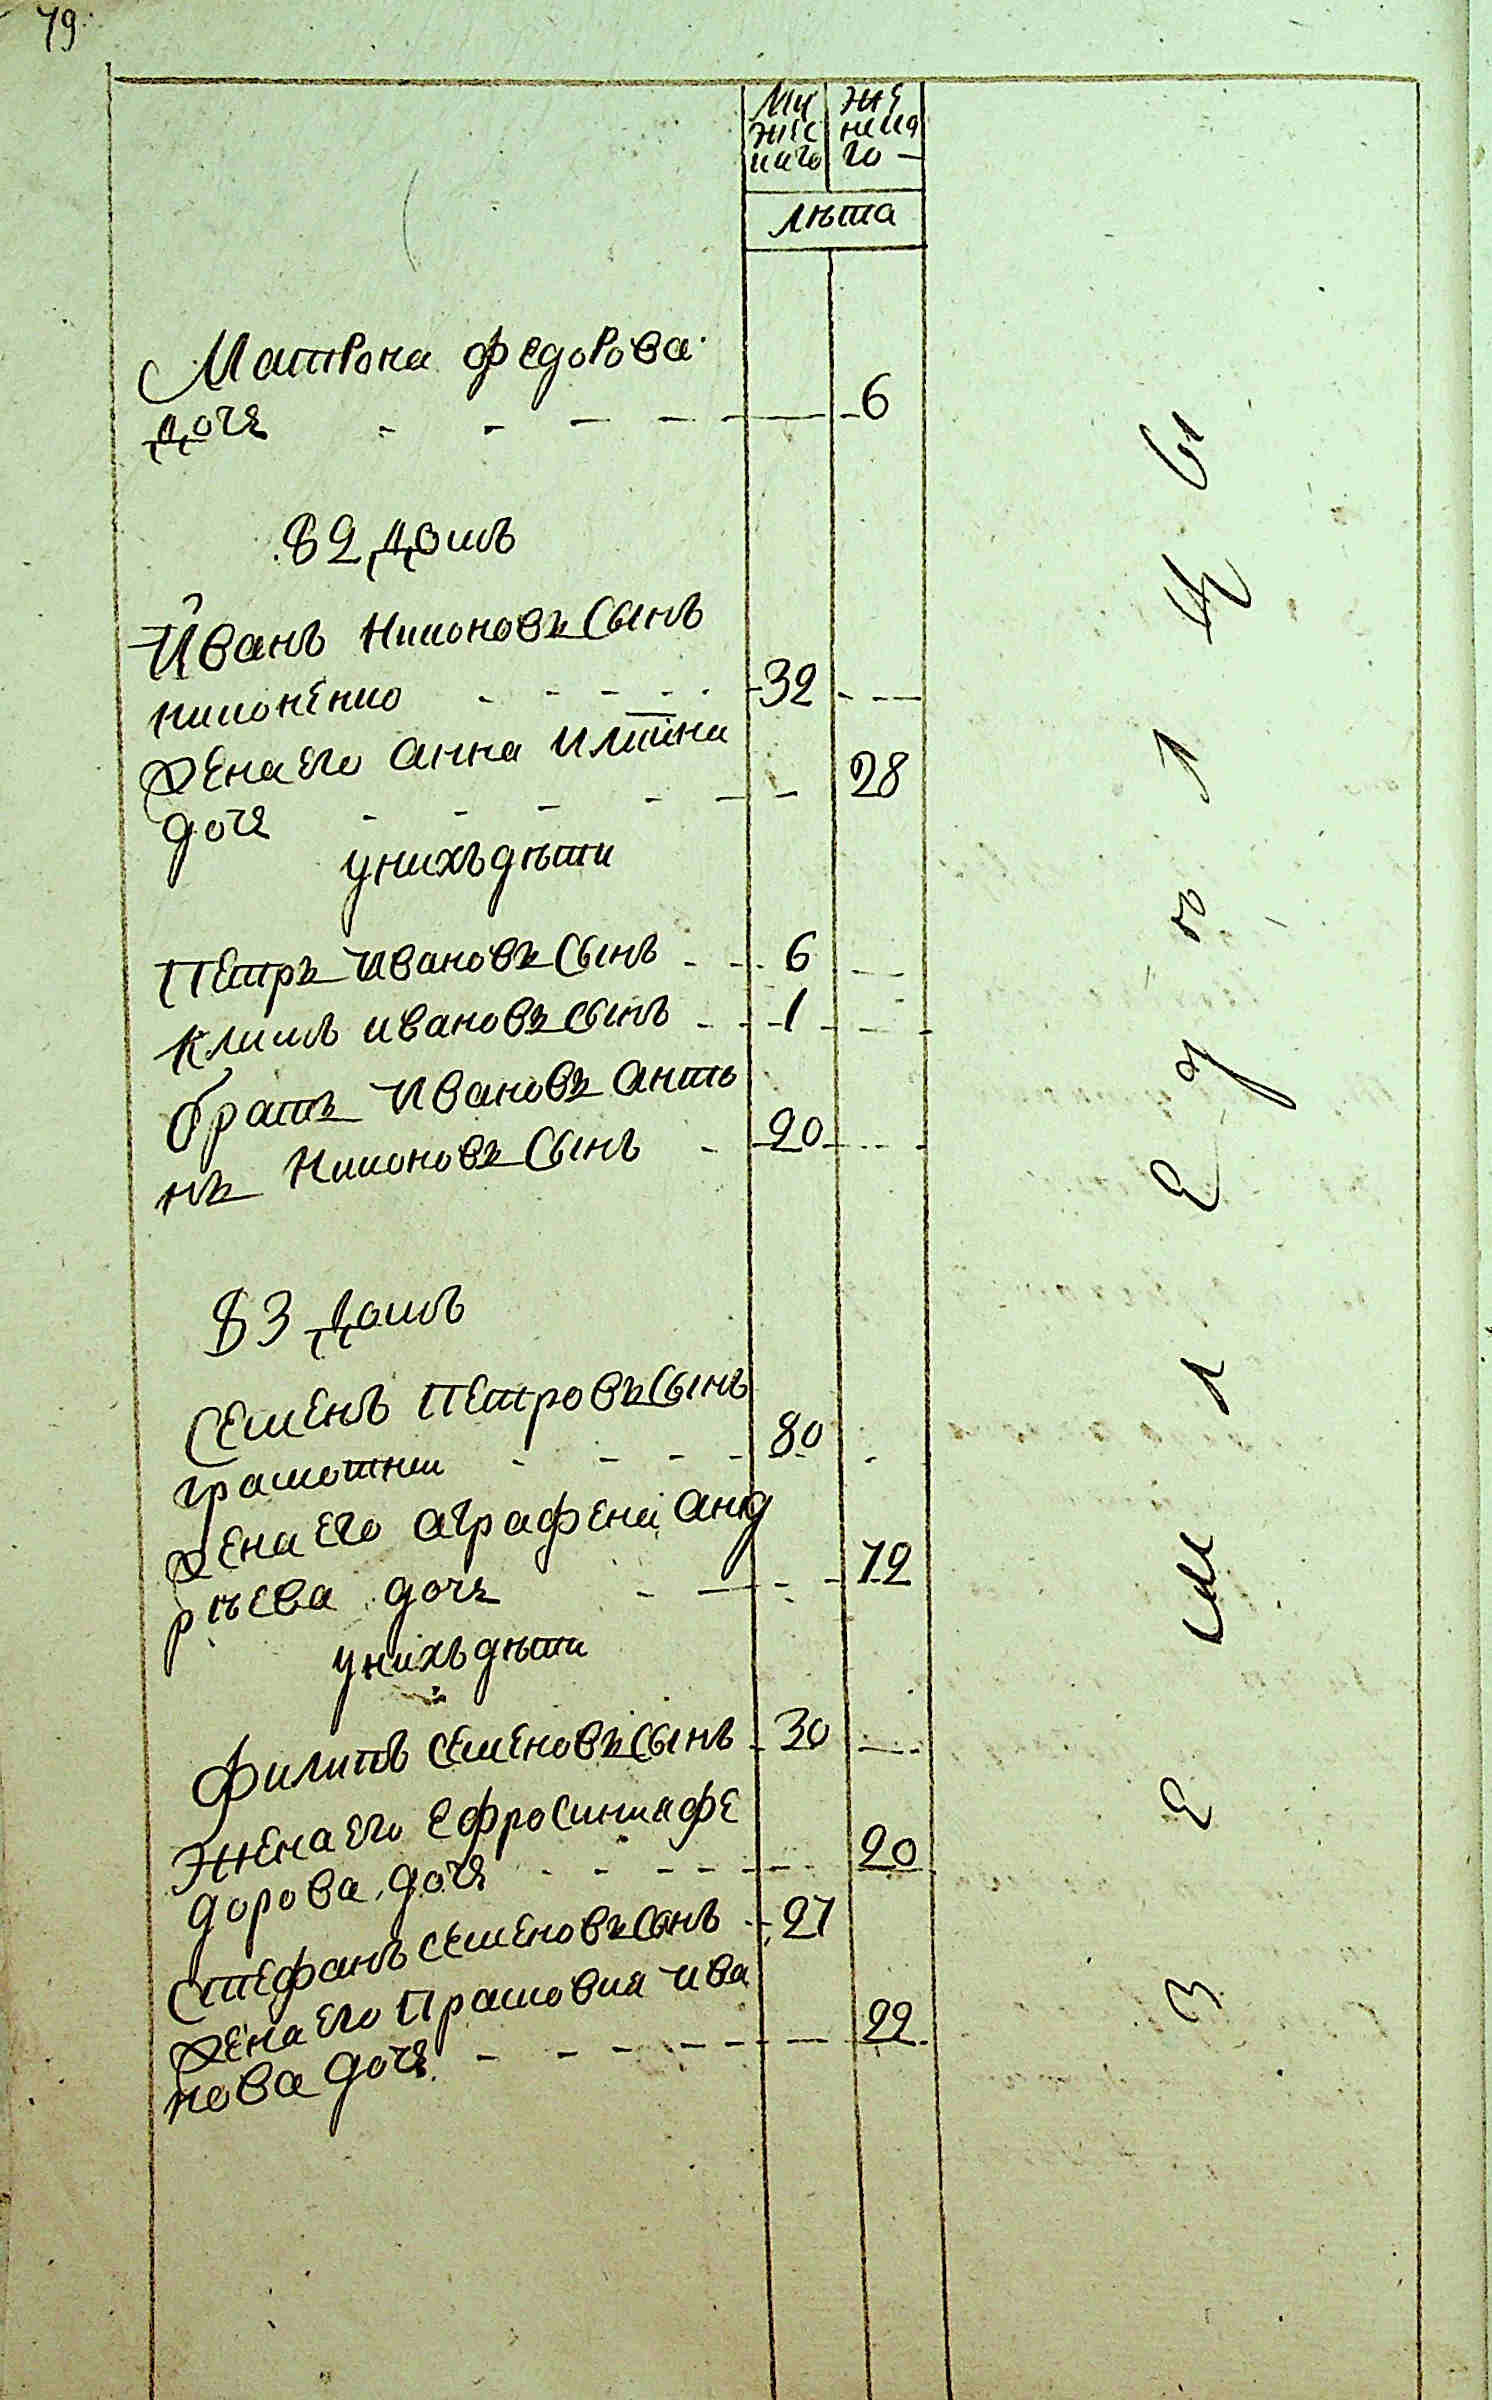 79.
му
жес
каго
же
нска
го —
лѣта
Матрона Федорова
дочь 6
82 Домъ
Иванъ Никоновъ сынъ
никоненко 32
Жена его Анна
дочь 28
у нихъ дѣти
Петръ Ивановъ сынъ 6
Климъ Ивановъ сынъ 1
братъ Ивановъ Анто
нъ Никоновъ сынъ 20
83 Домъ
Семенъ Петровъ сынъ
80
Жена его Аграфена Анд
рѣева дочь 72
у нихъ дѣти
Филипъ Семеновъ сынъ 30
Жена его Ефросиния Фе
дорова дочь 20
Стефанъ Семеновъ сынъ 27
Жена его Прасковия Ива
нова дочь 22